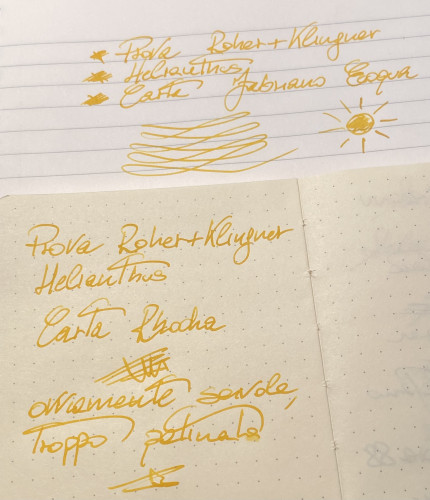 Prova Roher+Klingner
Helianthus
Carta Fabriano Ecoqua
Prova Roher+Klingner
Helianthus
Carta Rhodia
ovviamente scivola,
Troppo patinata